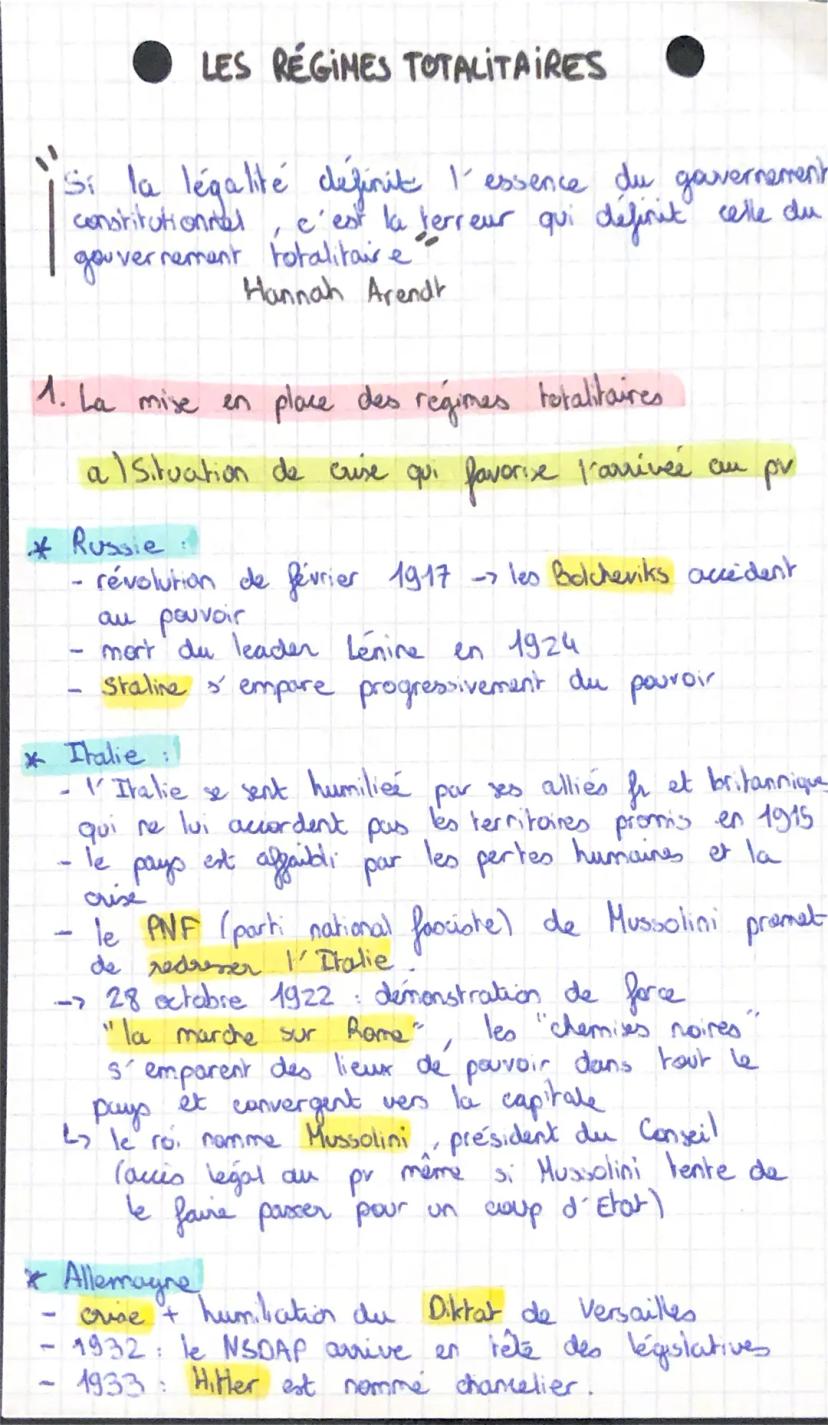 LES RÉGIMES TOTALITAIRES
"Si la légalité définit l'essence du gouvernement
constitutionnel, c'est la terreur qui définit celle du
gouvernement totalitaire"
Hannah Arendt
1. La mise en place des régimes totalitaires
a) Situation de crise qui favorise l'arrivée au pv
* Russie :
- révolution de février 1917 -> les Bolcheviks accèdent
au pouvoir
- mort du leader Lénine en 1924
- Staline s'empare progressivement du pouvoir
* Italie :
- l'Italie se sent humiliée par ses alliés fr et britannique
qui ne lui accordent pas les territoires promis en 1915
- le pays est affaibli par les pertes humaines et la
crise
- le PNF (parti national fasciste) de Mussolini promet
de redresser l'Italie.
-> 28 octobre 1922 : démonstration de force
"la marche sur Rome", les "chemises noires"
s'emparent des lieux de pouvoir dans tout le
pays et convergent vers la capitale
↳ le roi nomme Mussolini, président du Conseil
(accès légal au pv même si Mussolini tente de
le faire passer pour un coup d'Etat)
* Allemagne
- crise + humiliation du Diktat de Versailles
- 1932 : le NSDAP arrive en tête des législatives
- 1933 : Hitler est nommé chancelier.